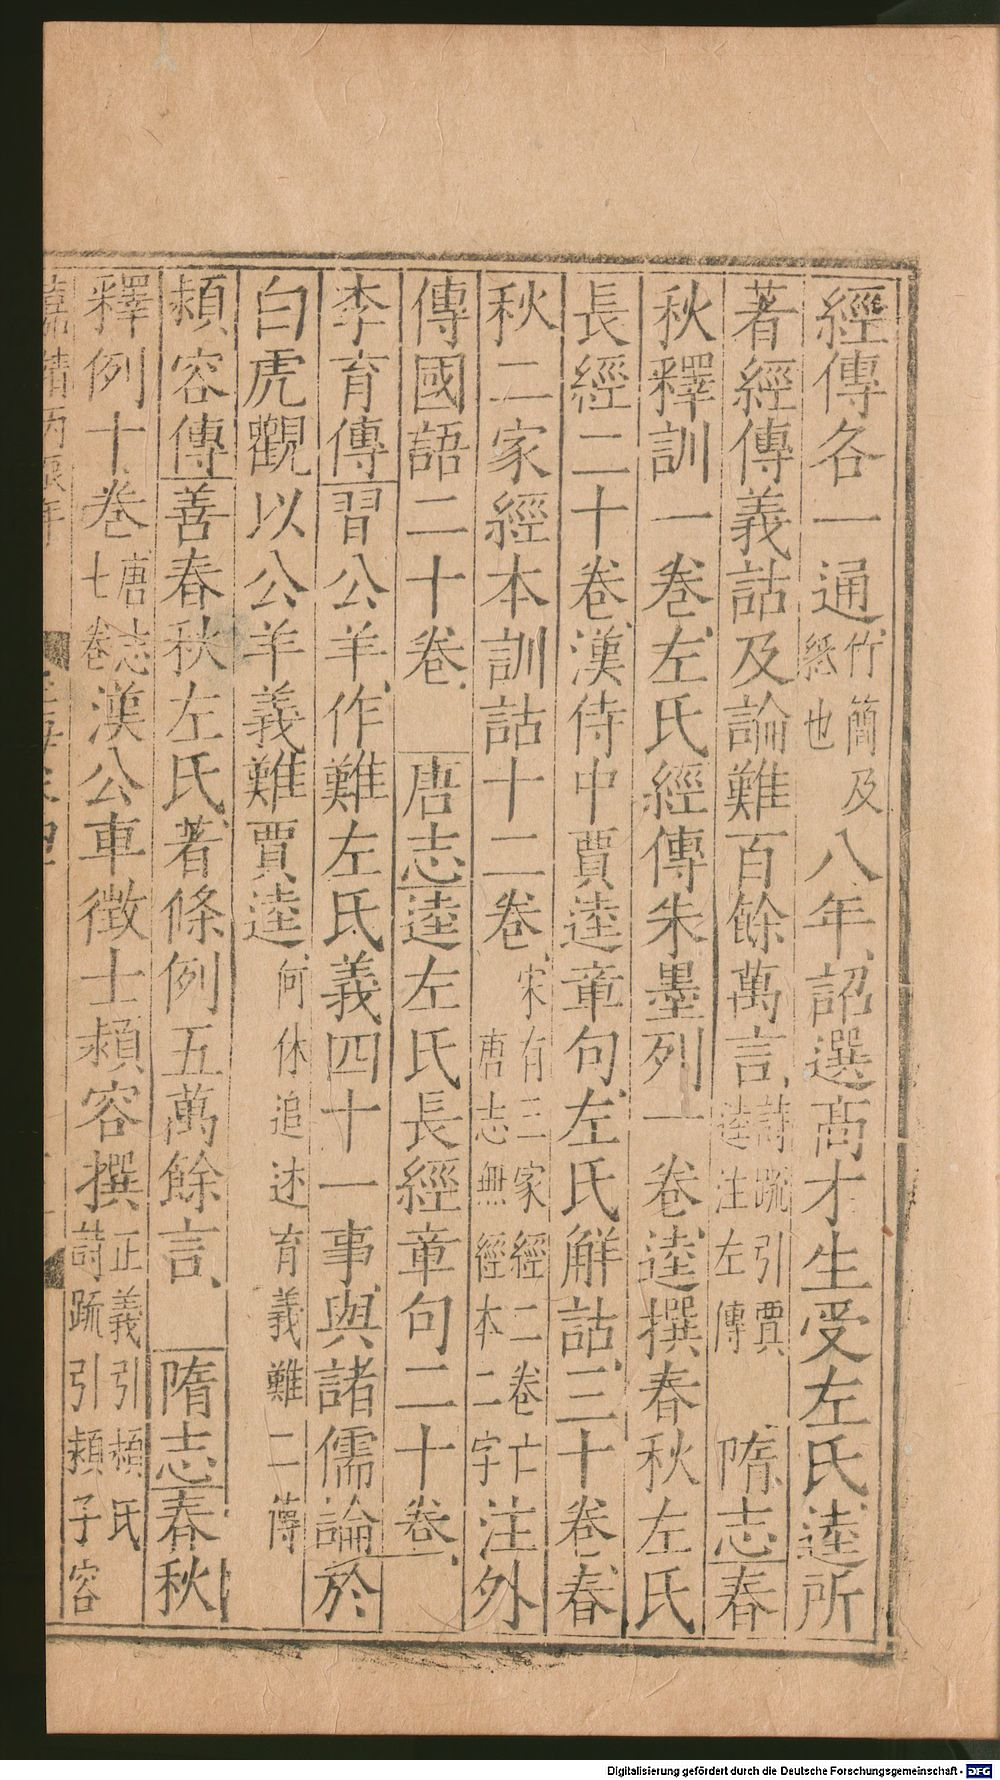 經傳各一通竹簡及紙也八年詔選高才生受左氏逵所
著經傳義詁及論難百餘萬言詩疏引賈逵注左傳 隋志春
秋釋訓一卷左氏經傳朱墨列一卷逵撰春秋左氏
長經二十卷漢侍中賈逵章句左氏解詁三十卷春
秋二家經本訓詁十二卷宋有三家經二卷亡唐志無經本二字注外
傳國語二十卷 唐志逵左氏長經章句二十卷
李育傳習公羊作難左氏義四十一事與諸儒論於
白虎觀以公羊義難賈逵何休追述育義難二傳
頴容傳善春秋左氏著條例五萬餘言 隋志春秋
釋例十卷唐志七卷漢公車徵士頴容撰正義引頴氏詩疏引頴子容
Digitalisierung gefördert durch die Deutsche Forschungsgemeinschaft - DFG